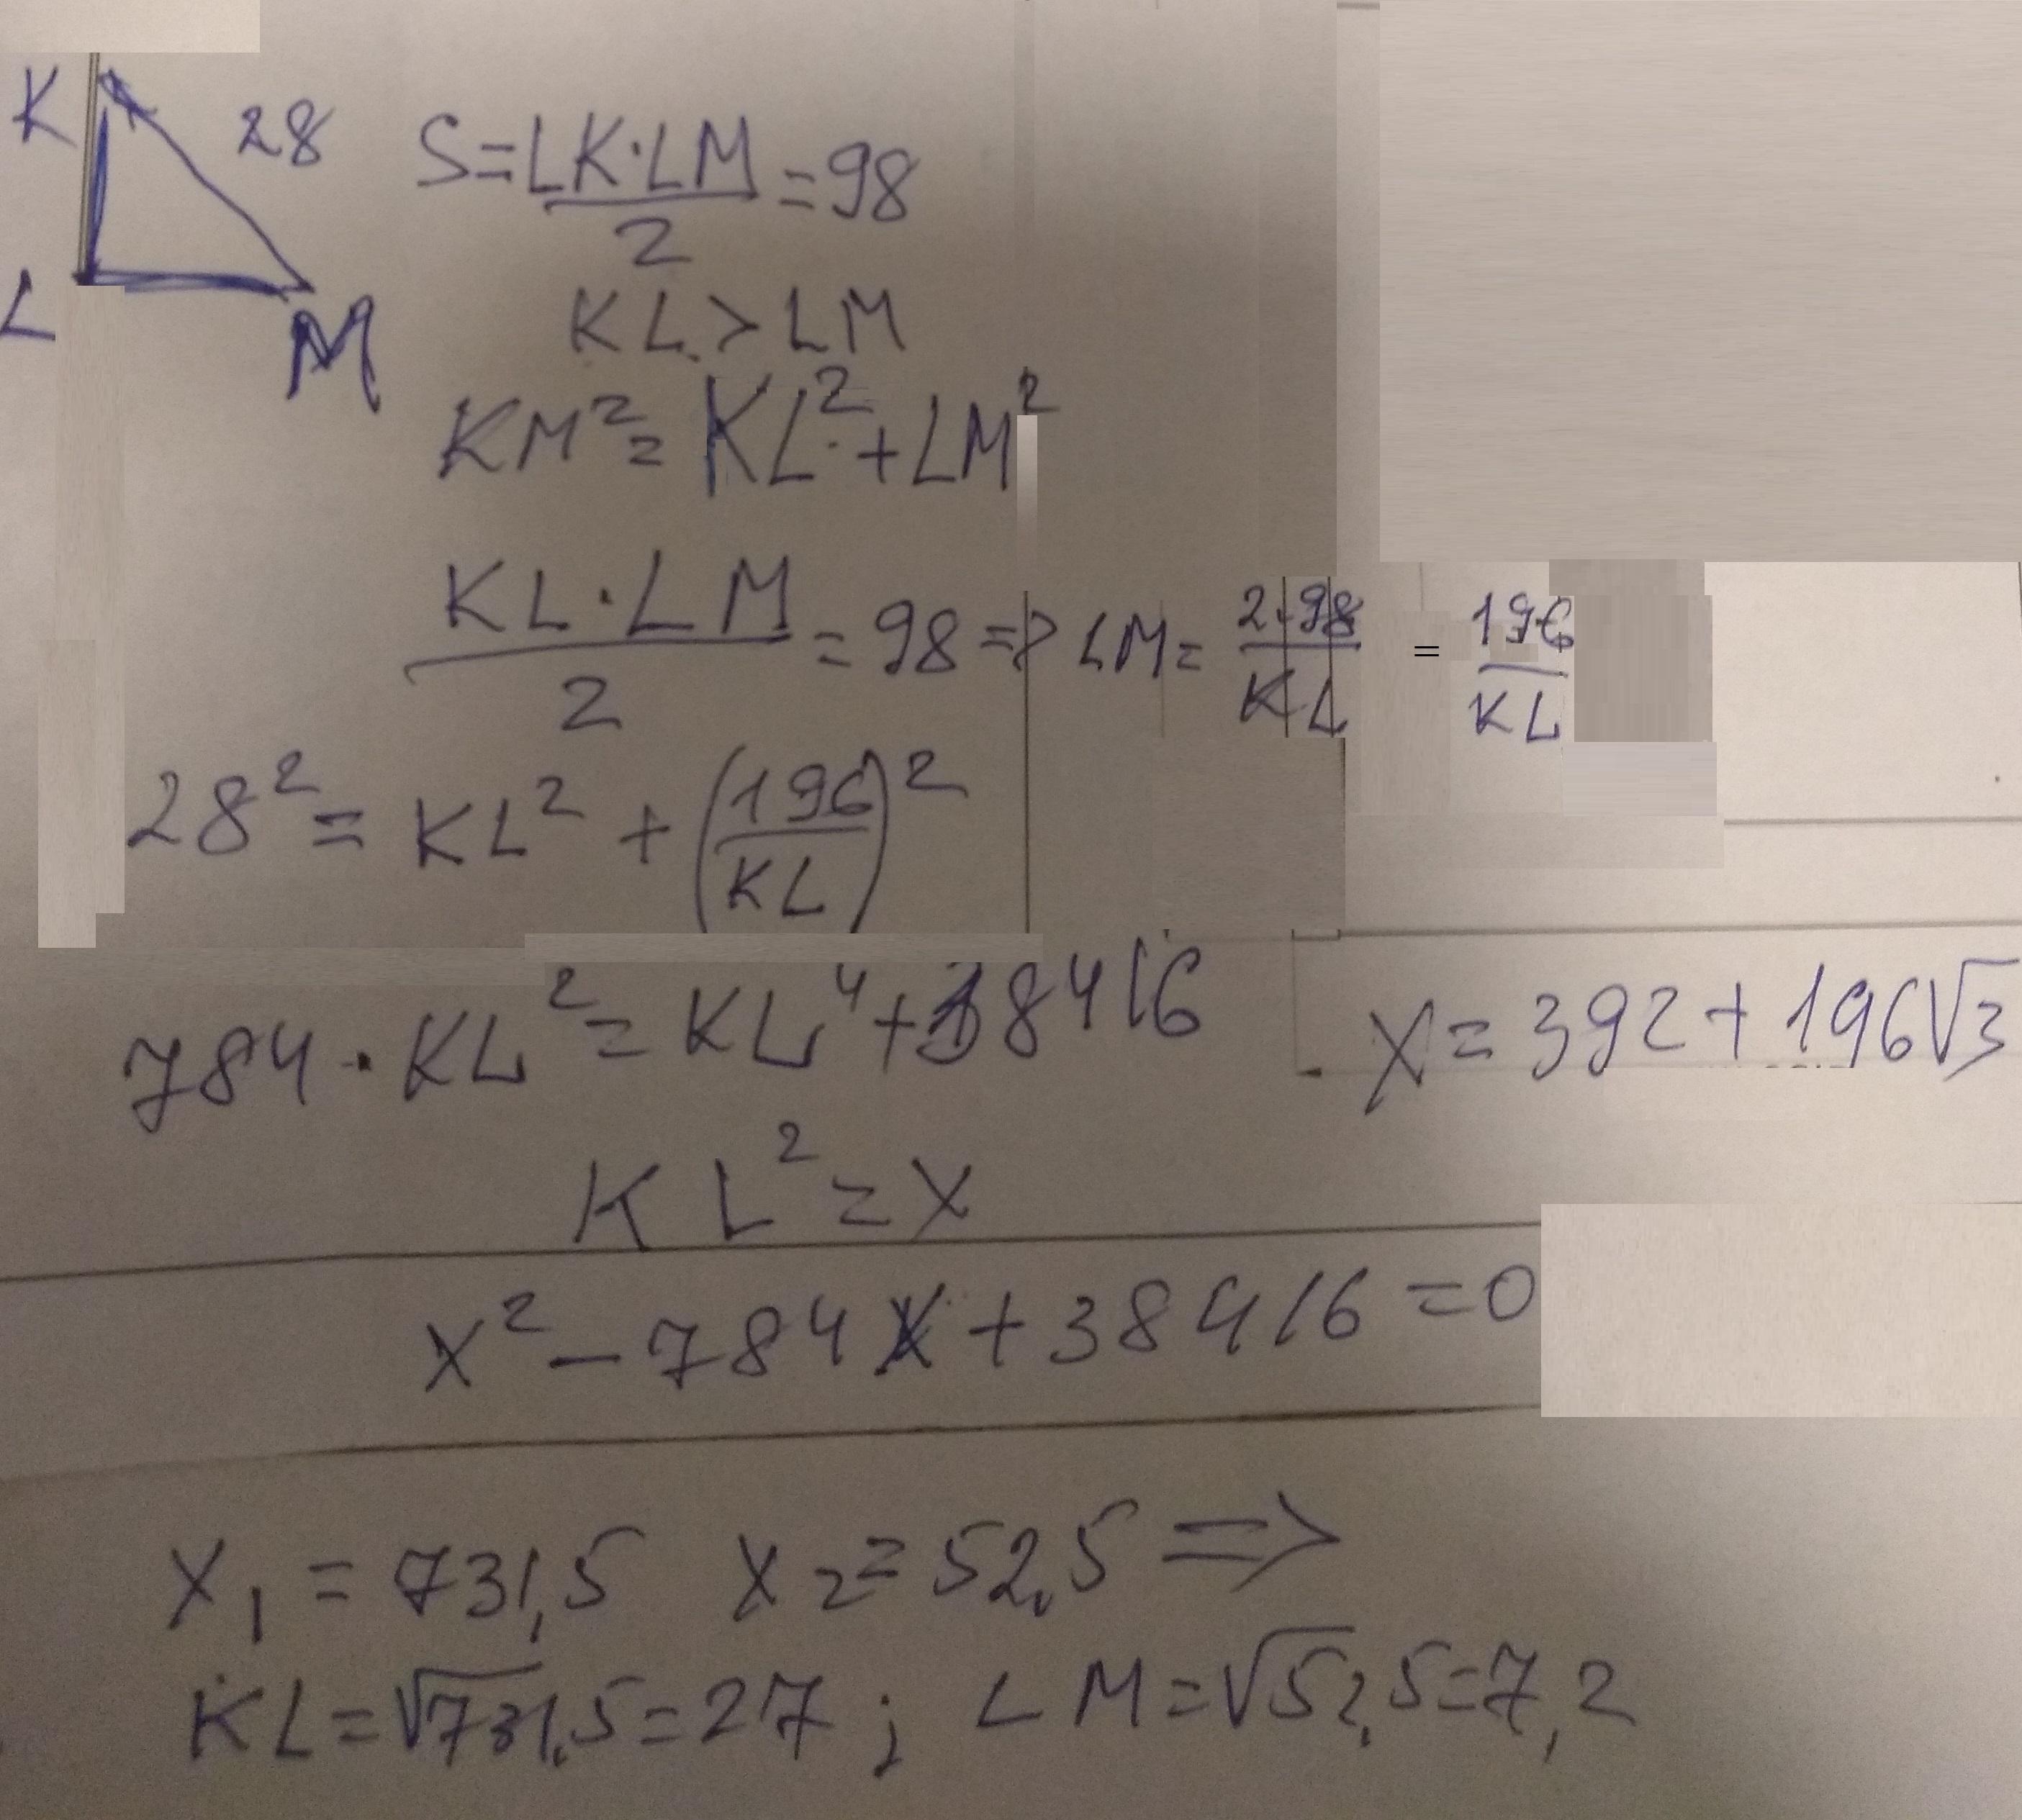 K 28
L M
S=LK·LM/2=98
KL>LM
KM²=KL²+LM²
KL·LM/2=98=>LM=2·98/KL = 196/KL
28²=KL²+(196/KL)²
784·KL²=KL⁴+38416
X=392+196√3
KL²=X
X²-784X+38416=0
X₁=731,5 X₂=52,5=>
KL=√731,5=27; LM=√52,5=7,2